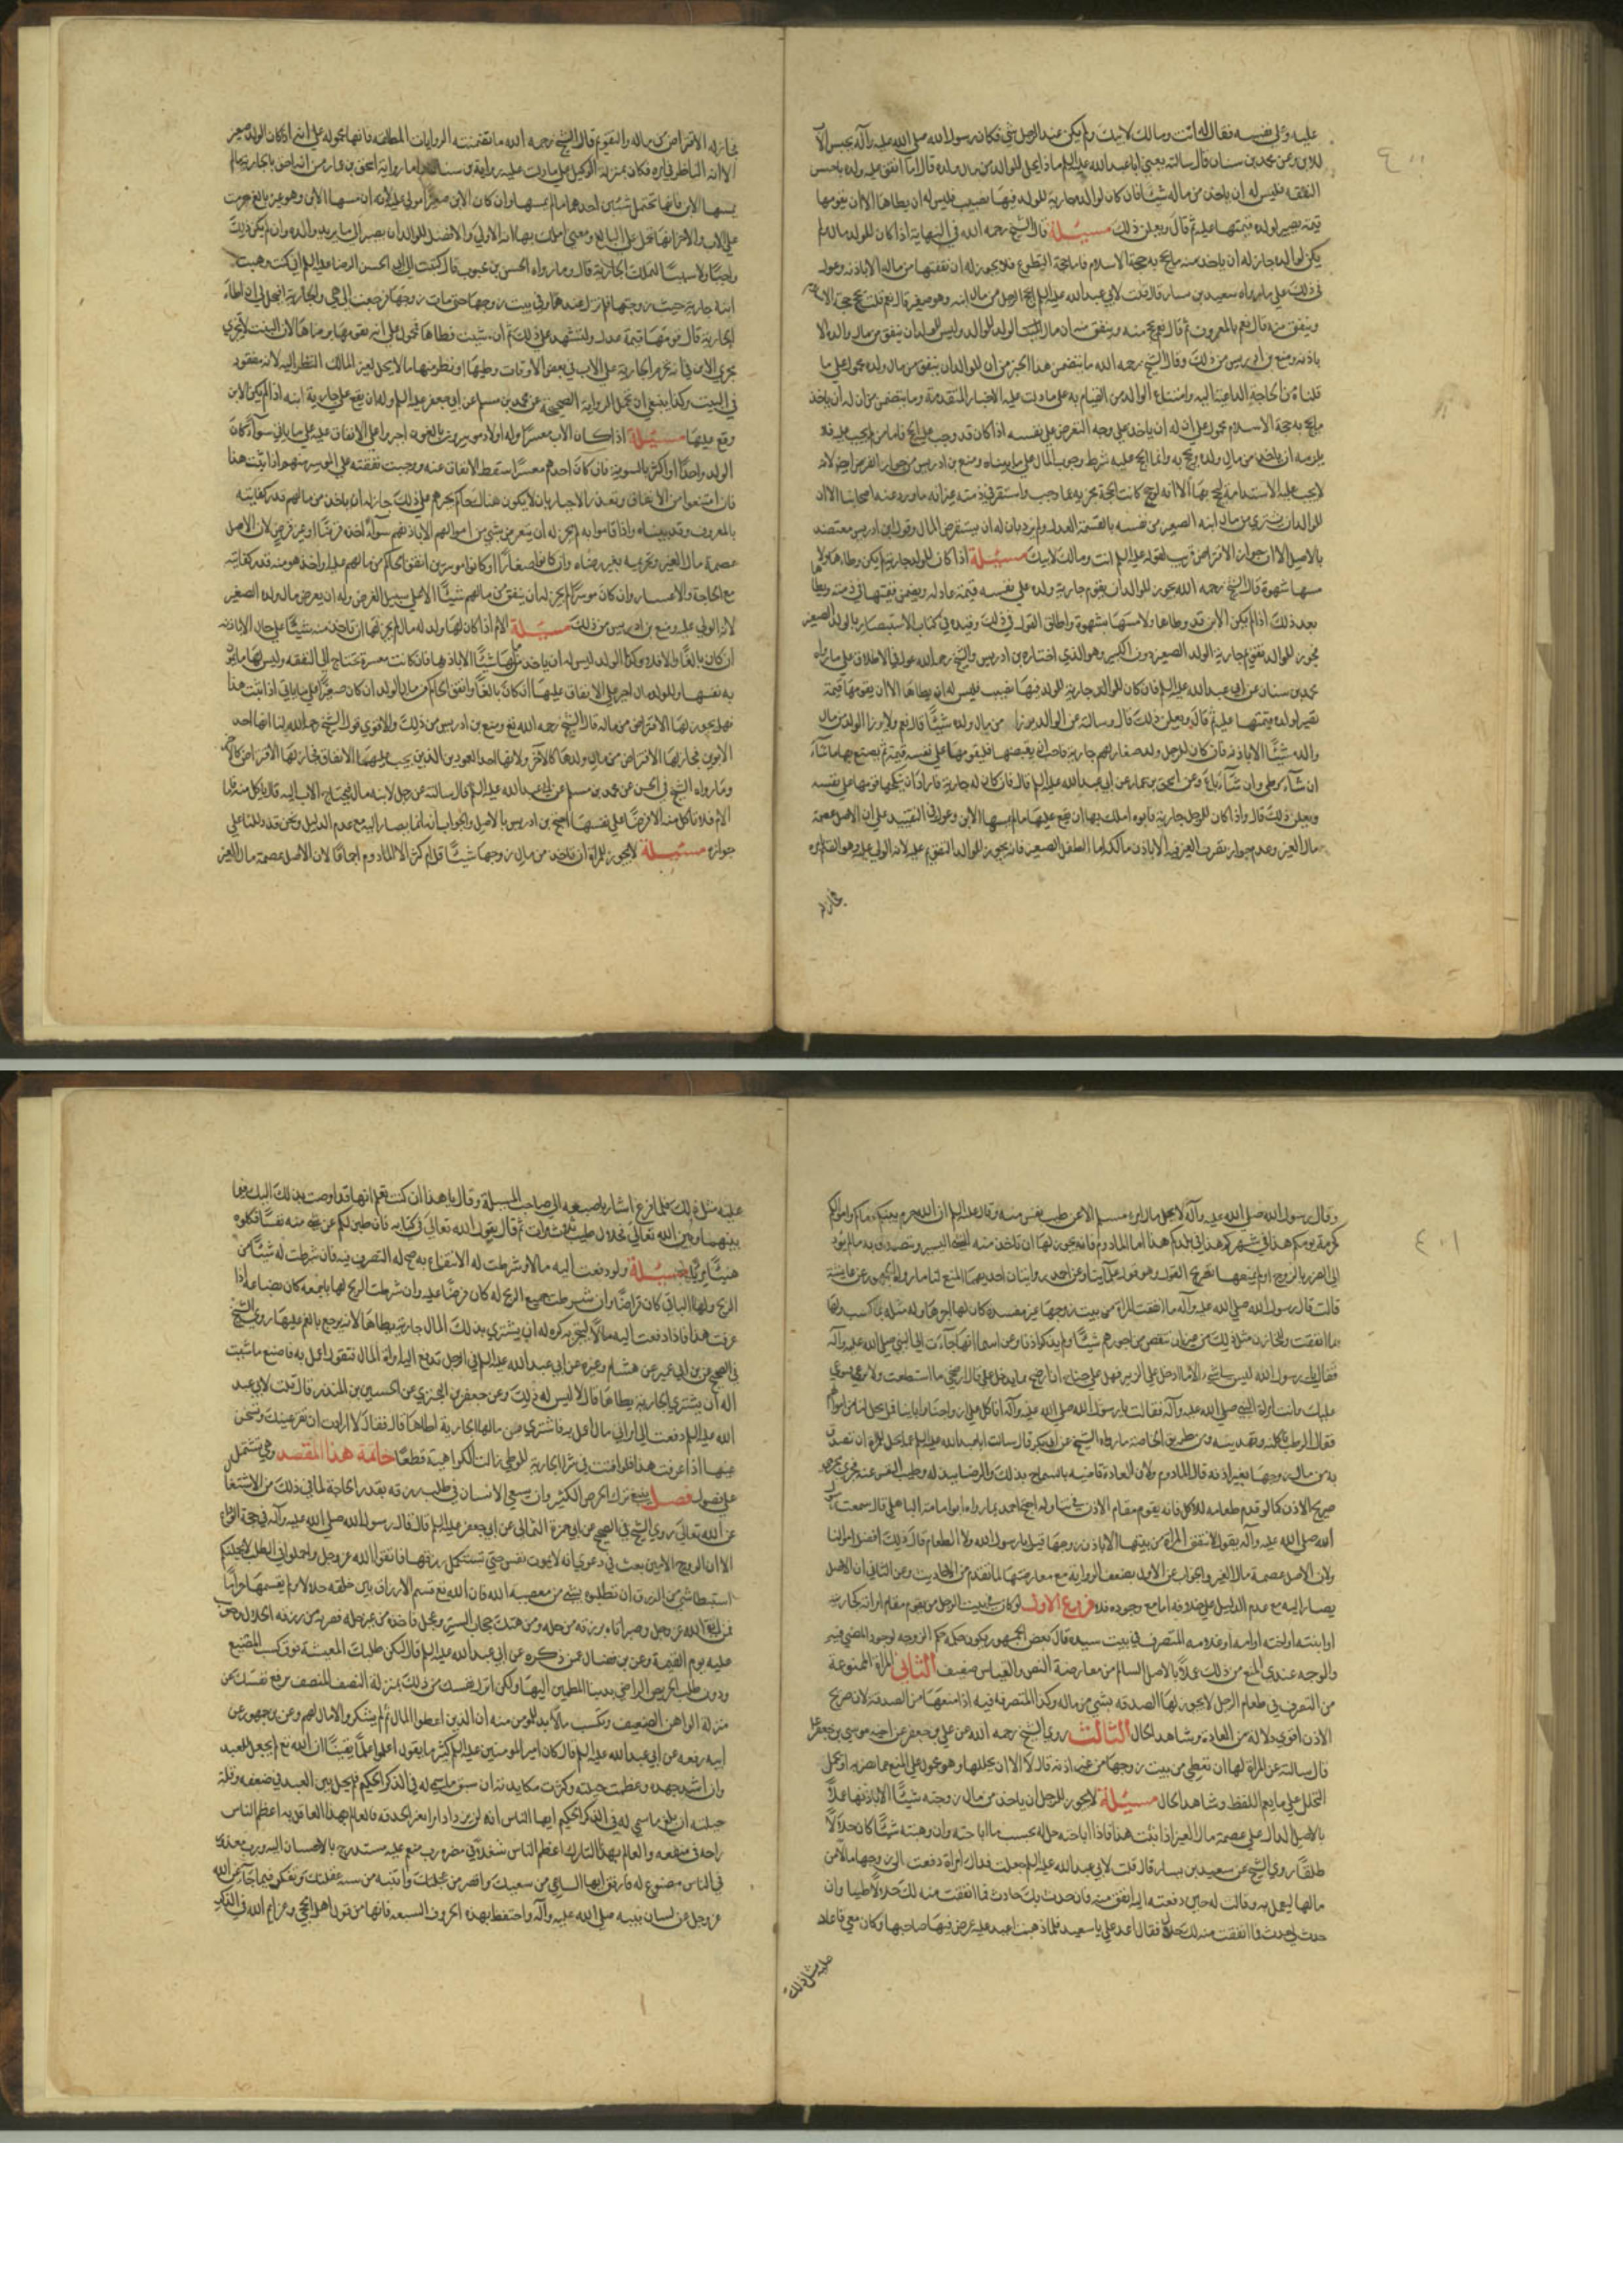 عليه وعلى نفسه فقال له انت ومالك لابيك ولم يكن عند الرجل شي فكان رسول الله صلى الله عليه وآله يحبس الأب
للابن وعن محمد بن سنان قال سالته يعني اباعبدالله عليه السلم ماذا يحل للوالد من مال ولده قال اما اذا انفق عليه ولده باحسن
النفقه فليس له ان ياخذ من ماله شيئا فان كان لوالده جارية للولد فيها نصيب فليس له ان يطاها الا ان يقومها
قيمة يصير لولده قيمتها عليه ثم قال ويعلن ذلك مسئلة قال الشيخ رحمه الله في النهاية اذا كان للولد مال ولم
يكن لوالده جاز له ان ياخذ منه ما يحج به حجة الاسلام فاما حجة التطوع فلا يجوز له ان نفقتها من ماله الا باذنه وعول
في ذلك على ما رواه سعيد بن يسار قال قلت لابي عبدالله عليه السلم ايحج الرجل من مال ابنه وهو صغير قال نعم قلت يحج حجة الاسلام
وينفق منه قال نعم بالمعروف ثم قال نعم يحج منه وينفق منه ان مال الولد للوالد وليس للولد ان ينفق من مال والده الا
باذنه ومنع بن ادريس من ذلك وقال الشيخ رحمه الله ما يتضمن هذا الخبر من ان للوالد ان ينفق من مال ولده محمول على ما
قلناه من الحاجة الداعية اليه وامتناع الولد من القيام به على ما دلت عليه الاخبار المتقدمة وما يتضمن من ان له ان ياخذ
ما يحج به حجة الاسلام محمول على ان له ان ياخذ على وجه القرض على نفسه اذا كان قد وجب عليه الحج فاما من لم يجب عليه فلا
يلزمه ان ياخذ من مال ولده ويحج به وانما يجب عليه بشرط وجود المال على ما بيناه ومنع بن ادريس من جواز القرض ايضا لانه
لا يجب عليه الاستدانة ليحج بها الا انه لو حج كانت الحجة مجزيه عما وجب واستقر في ذمته غير انه ما ورد عند اصحابنا الا ان
للوالد ان يشتري من مال ابنه الصغير من نفسه بالقيمة العدل ولم يرد بان له ان يستقرض المال وقول ابن ادريس معتضد
بالاصل الا ان جواز الاقتراض قريب لقوله عليه السلم انت ومالك لابيك مسئلة اذا كان للولد جارية لم يكن وطاها ولا
مسها شهوة قال الشيخ رحمه الله يجوز للوالد ان يقوم جارية ولده على نفسه قيمة عادله ويضمن قيمتها في ذمته ويطاها
بعد ذلك اذا لم يكن الابن قد وطاها ولا مسها بشهوة واطلق القول في ذلك وقيده في كتاب الاستبصار بالولد الصغير
مجوز للوالد تقويم جارية الولد الصغير دون الكبير وهو الذي اختاره بن ادريس والشيخ رحمه الله عول في الاطلاق على ما رواه
محمد بن سنان عن ابي عبدالله عليه السلم فان كان للوالد جارية للولد فيها نصيب فليس له ان يطاها الا ان يقومها قيمة
تصير لولده قيمتها عليه ثم قال ويعلن ذلك قال وسالته عن الوالد يرزا من مال ولده شيئا قال نعم ولا يرزا الولد من مال
والده شيئا الا باذنه فان كان للرجل ولد صغار لهم جارية فاحب ان يقتضها فليقومها على نفسه قيمة ثم يصنع بها ما شاء
ان شاء وطي وان شاء باع وعن اسحق بن عمار عن ابي عبدالله عليه السلم قال فان كان له جارية فاراد ان ينكحها قومها على نفسه
ويعلن ذلك قال واذا كان للرجل جارية فابوه املك بها ان يقع عليها ما لم يمسها الابن وعول في التقييد على ان الاصل عصمة
مال الغير وعدم جواز تصرف الغير فيه الا باذن مالكه اما الطفل الصغير فانه يجوز للوالد التقويم عليه لانه الولي عليه وهو القائم بامره
فجاز له
فجاز له الاقتراض من ماله والتقويم قال الشيخ رحمه الله ما تضمنته الروايات المطلقة فانها محمولة على انه اذا كان الولد صغير
الا انه الناظر في امره فكان بمنزلة الوكيل على ما دلت عليه رواية بن سنان اما رواية اسحق بن عمار من انه احق بالجارية ما لم
يمسها الابن فانها تحتمل شيئين احدهما ما لم يمسها وان كان الابن صغيرا مولى عليه لانه ان مسها الابن وهو غير بالغ حرمت
على الاب والاخر انها تحمل على البالغ ومعنى املك بها انه الاولى والافضل للولد ان يصير الى ما يريد والده وان لم يكن ذلك
واجبا ولا سببا لملك الجارية قال وما رواه الحسن بن محبوب قال كتبت الى ابي الحسن الرضا عليه السلم اني كنت وهبت
ابنه لي جارية حيث زوجتها فلم تزل عندها وفي بيت زوجها حتى مات زوجها فرجعت الي هي والجارية افيحل لي ان اطاء
الجارية قال قومها قيمة عدل واشهد على ذلك ثم ان شئت فطاها محمول على انه يقومها برضاها لان البنت لا تجري
مجرى الابن في انه تحرم الجارية على الاب في بعض الاوقات وطيها او نظر منها ما لا يحل لغير المالك النظر اليه لانه مفقود
في البنت وكذا ينبغي ان تحمل الرواية الصحيحة عن محمد بن مسلم عن ابي جعفر عليه السلم وله ان يقع على جارية ابنه اذا لم يكن الابن
وقع عليها مسئلة اذا كان الاب معسرا وله اولاد موسرون بالغون اجبروا على الانفاق عليه على ما ياتي سواء كان
الولد واحدا او اكثر بالسوية فان كان احدهم معسرا اسقط الانفاق عنه ووجبت نفقته على الموسر منهم اذا ثبت هذا
فان امتنعوا من الانفاق وتعذر الاجبار بان لا يكون هناك حاكم يجبرهم على ذلك جاز له ان ياخذ من مالهم قدر كفايته
بالمعروف وقد بيناه واذا قاموا به لم يجز له ان يتعرض بشي من اموالهم الا باذنهم سواء اخذه قرضا او غير قرض لان الاصل
عصمة مال الغير وتحريمه بغير رضاه وان كانوا صغارا او كانوا موسرين انفق الحاكم من مالهم عليه او اخذ هو منه قدر كفايته
مع الحاجة والاعسار وان كان موسرا لم يجز له ان ينفق من مالهم شيئا الا على سبيل القرض وله ان يعرض مال ولده الصغير
لانه الولي عليه ومنع بن ادريس من ذلك مسئلة الام اذا كان لها ولد له مال لم يجز لها ان تاخذ منه شيئا على حال الا باذنه
ان كان بالغا والا فلا وكذا الولد ليس له ان ياخذ من مالها شيئا الا باذنها فان كانت معسرة تحتاج الى النفقه وليس لها ما ينفق
به نفسها وللولد مال اجبر على الانفاق عليها ان كان بالغا وانفق الحاكم من مال الولد ان كان صغيرا على ما ياتي اذا ثبت هذا
فهل يجوز لها الاقتراض من ماله قال الشيخ رحمه الله نعم ومنع بن ادريس من ذلك والاقوى قول الشيخ رحمه الله لنا انها احد
الابوين فجاز لها الاقتراض من مال ولدها كالاخر ولانها احد العمودين الذين يجب عليهما الانفاق فجاز لها الاقتراض كالاب
وما رواه الشيخ في الحسن عن محمد بن مسلم عن ابي عبدالله عليه السلم قال سالته عن رجل لابنه مال فيحتاج الاب اليه قال ياكل منه فاما
الام فلا تاكل منه الا قرضا على نفسها احتج بن ادريس بالاصل والجواب انه انما يصار اليه مع عدم الدليل ونحن قد دللنا على
جوازه مسئلة لا يجوز للمراة ان تاخذ من مال زوجها شيئا قل ام كثر الا المادوم اجماعا لان الاصل عصمة مال الغير
وقال رسول الله صلى الله عليه وآله لا يحل مال امرء مسلم الا عن طيب نفس منه وقال عليه السلم ان الله حرم بينكم دماكم واموالكم
كحرمة يومكم هذا في شهركم هذا في بلدكم هذا اما المادوم فانه يجوز لها ان تاخذ منه الشي اليسير وتتصدق به ما لم يؤد
الى الضرر بالزوج او لم يمنعها بصريح القول وهو قول علمائنا وعن احمد روايتان احديهما المنع لنا ما رواه الجمهور عن عايشة
قالت قال رسول الله صلى الله عليه وآله ما انفقت المراة من بيت زوجها غير مفسدة كان لها اجرها وله مثله بما كسب ولها
بما انفقت وللخازن مثل ذلك من غير ان ينقص من اجورهم شيئا ولم يذكر اذنا وعن اسما انها جاءت الى النبي صلى الله عليه وآله
فقالت يا رسول الله ليس لي شي الا ما ادخل علي الزبير فهل علي جناح ان ارضخ مما يدخل علي قال ارضخي ما استطعت ولا توعي فيوعي
عليك واتت امراة النبي صلى الله عليه وآله فقالت يا رسول الله صلى الله عليه وآله انا كل على ازواجنا وابائنا فما يحل لنا من اموالهم
فقال الرطب تاكلنه وتهدينه ومن طريق الخاصة ما رواه الشيخ عن ابن بكير قال سالت اباعبدالله عليه السلم عما يحل للمراة ان تصدق
به من مال زوجها بغير اذنه قال المادوم ولان العادة قاضية بالسماح بذلك والرضا ببذله وطيب النفس عنه فجرى مجرى
صريح الاذن كما لو قدم طعامه للاكل فانه يقوم مقام الاذن في تناوله احتج احمد بما رواه ابو امامة الباهلي قال سمعت رسول
الله صلى الله عليه وآله يقول لا تنفق المراة من بيتها الا باذن زوجها قيل يا رسول الله ولا الطعام قال ذلك افضل اموالنا
ولان الاصل عصمة مال الغير والجواب عن الاول بضعف الرواية مع معارضتها لما تقدم من الاحاديث وعن الثاني ان الاصل
يصار اليه مع عدم الدليل على خلافه اما مع وجوده فلا فروع الاول لو كان في بيت الرجل من يقوم مقام امراته كجاريته
او ابنته او اخته او امه او غلامه المتصرف في بيت سيده قال بعض الجمهور يكون حكمه حكم الزوجة لوجود المقتضي فيه
والوجه عندي المنع من ذلك عملا بالاصل السالم من معارضة النص والقياس ضعيف الثاني المراة الممنوعة
من التصرف في طعام الرجل لا يجوز لها الصدقه بشي من ماله وكذا المتصرفه فيه اذا منعها من الصدقة لان صريح
الاذن اقوى دلالة من العادة وشاهد الحال الثالث روى الشيخ رحمه الله عن علي بن جعفر عن اخيه موسى بن جعفر عليهما السلم
قال سالته عن المراة لها ان تعطي من بيت زوجها من غير اذنه قال لا الا ان يحللها وهو محمول على المنع عما يضر به او تحمل
التحلل على ما يعم اللفظ وشاهد الحال مسئلة لا يجوز للرجل ان ياخذ من مال زوجته شيئا الا باذنها عملا
بالاصل الدال على عصمة مال الغير اذا ثبت هذا فاذا اباحته حل له بحسب ما اباحته وان وهبته شيئا كان حلالا
طلقا روى الشيخ عن سعيد بن يسار قال قلت لابي عبدالله عليه السلم جعلت فداك امراة دفعت الى زوجها مالا من
مالها ليعمل به وقالت له حين دفعته اليه انفق منه فان حدث بك حادث فما انفقت منه لك حلالا طيبا وان
حدث لي حدث فما انفقت منه لك حلال فقال اعد علي يا سعيد فلما ذهبت اعيد عليه عرض فيها صاحبها وكان معي فاعاد
عليه مثل ذلك
عليه مثل ذلك فلما فرغ اشار باصبعه الى صاحب المسئلة وقال يا هذا ان كنت تعلم انها قد اوصت بذلك اليك فيما
بينها وبين الله تعالى فحلال طيب ثلث مرات ثم قال يقول الله تعالى في كتابه فان طبن لكم عن شي منه نفسا فكلوه
هنيئا مريئا مسئلة ولو دفعت اليه مالا وشرطت له الانتفاع به صح له التصرف فيه فان شرطت له شيئا من
الربح ولها الباقي كان قراضا وان شرطت جميع الربح له كان قرضا عليه وان شرطت الربح لها باجمعه كان بضاعة اذا
عرفت هذا فاذا دفعت اليه مالا ليتجر به كره له ان يشتري بذلك المال جارية يطاها لانه يرجع بالغم عليها روى الشيخ
في الصحيح عن بن ابي عمير عن هشام وغيره عن ابي عبدالله عليه السلم في الرجل تدفع اليه امراة المال فتقول اعمل به فاصنع ما شئت
اله ان يشتري الجارية يطاها قال لا ليس له ذلك وعن جعفر بن الجزري عن الحسين بن المنذر قال قلت لابي عبد
الله عليه السلم دفعت الي امراتي مالا اعمل به فاشتري من مالها الجارية اطاها قال فقال لا ارادت ان تقر عينك وتسخن
عينها اذا عرفت هذا فلو اذنت في شرا الجارية للوطي زالت الكراهية قطعا خاتمة هذا المقصد وهي تشتمل
على فصول فصل ينبغي ترك الحرص الكثير وان يسعى الانسان في طلب رزقه بقدر الحاجة لما في ذلك من الاشتغال
عن الله تعالى روى الشيخ في الصحيح عن ابي حمزة الثمالي عن ابي جعفر عليه السلم قال قال رسول الله صلى الله عليه وآله في حجة الوداع
الا ان الروح الامين نفث في روعي انه لا تموت نفس حتى تستكمل رزقها فاتقوا الله عز وجل واجملوا في الطلب لا يحملنكم
استبطا شي من الرزق ان تطلبوه بشي من معصية الله فان الله تع قسم الارزاق بين خلقه حلالا ولم يقسمها حراما
فمن اتقى الله عز وجل وصبر اتاه برزقه من حله ومن هتك حجاب الستر وعجل فاخذه من غير حله قص به من رزقه الحلال وحوسب
عليه يوم القيمة وعن بن فضال عمن ذكره عن ابي عبدالله عليه السلم قال ليكن طلبك المعيشة فوق كسب المضيع
ودون طلب الحريص الراضي بدنياه المطمئن اليها ولكن انزل نفسك من ذلك بمنزلة النصف المنصف ترفع نفسك عن
منزلة الواهن الضعيف وتكسب مالا بد للمومن منه ان الذين اعطوا المال ثم لم يشكروا لا مال لهم وعن بن جمهور عن
ابيه رفعه عن ابي عبدالله عليه السلم قال كان امير المومنين عليه السلم كثيرا ما يقول اعلموا علما يقينا ان الله تع لم يجعل للعبد
وان اشتد جهده وعظمت حيلته وكثرت مكايدته ان يسبق ما سمي له في الذكر الحكيم ولم يحل بين العبد في ضعفه وقلة
حيلته ان يبلغ ما سمي له في الذكر الحكيم ايها الناس انه لن يزداد امرء نقيرا بحذقه فالعالم بهذا العامل به اعظم الناس
راحة في منفعه والعالم بهذا التارك له اعظم الناس شغلا في مضرة رب منعم عليه مستدرج بالاحسان اليه ورب معذور
في الناس مصنوع له فارفق ايها الساعي من سعيك واقصر من عجلتك وانتبه من سنة غفلتك وتفكر فيما جاء عن الله
عز وجل عن لسان نبيه صلى الله عليه وآله واحتفظ بهذه الحروف السبعه فانها من قول اهل الحجى وعزايم الله في الذكر